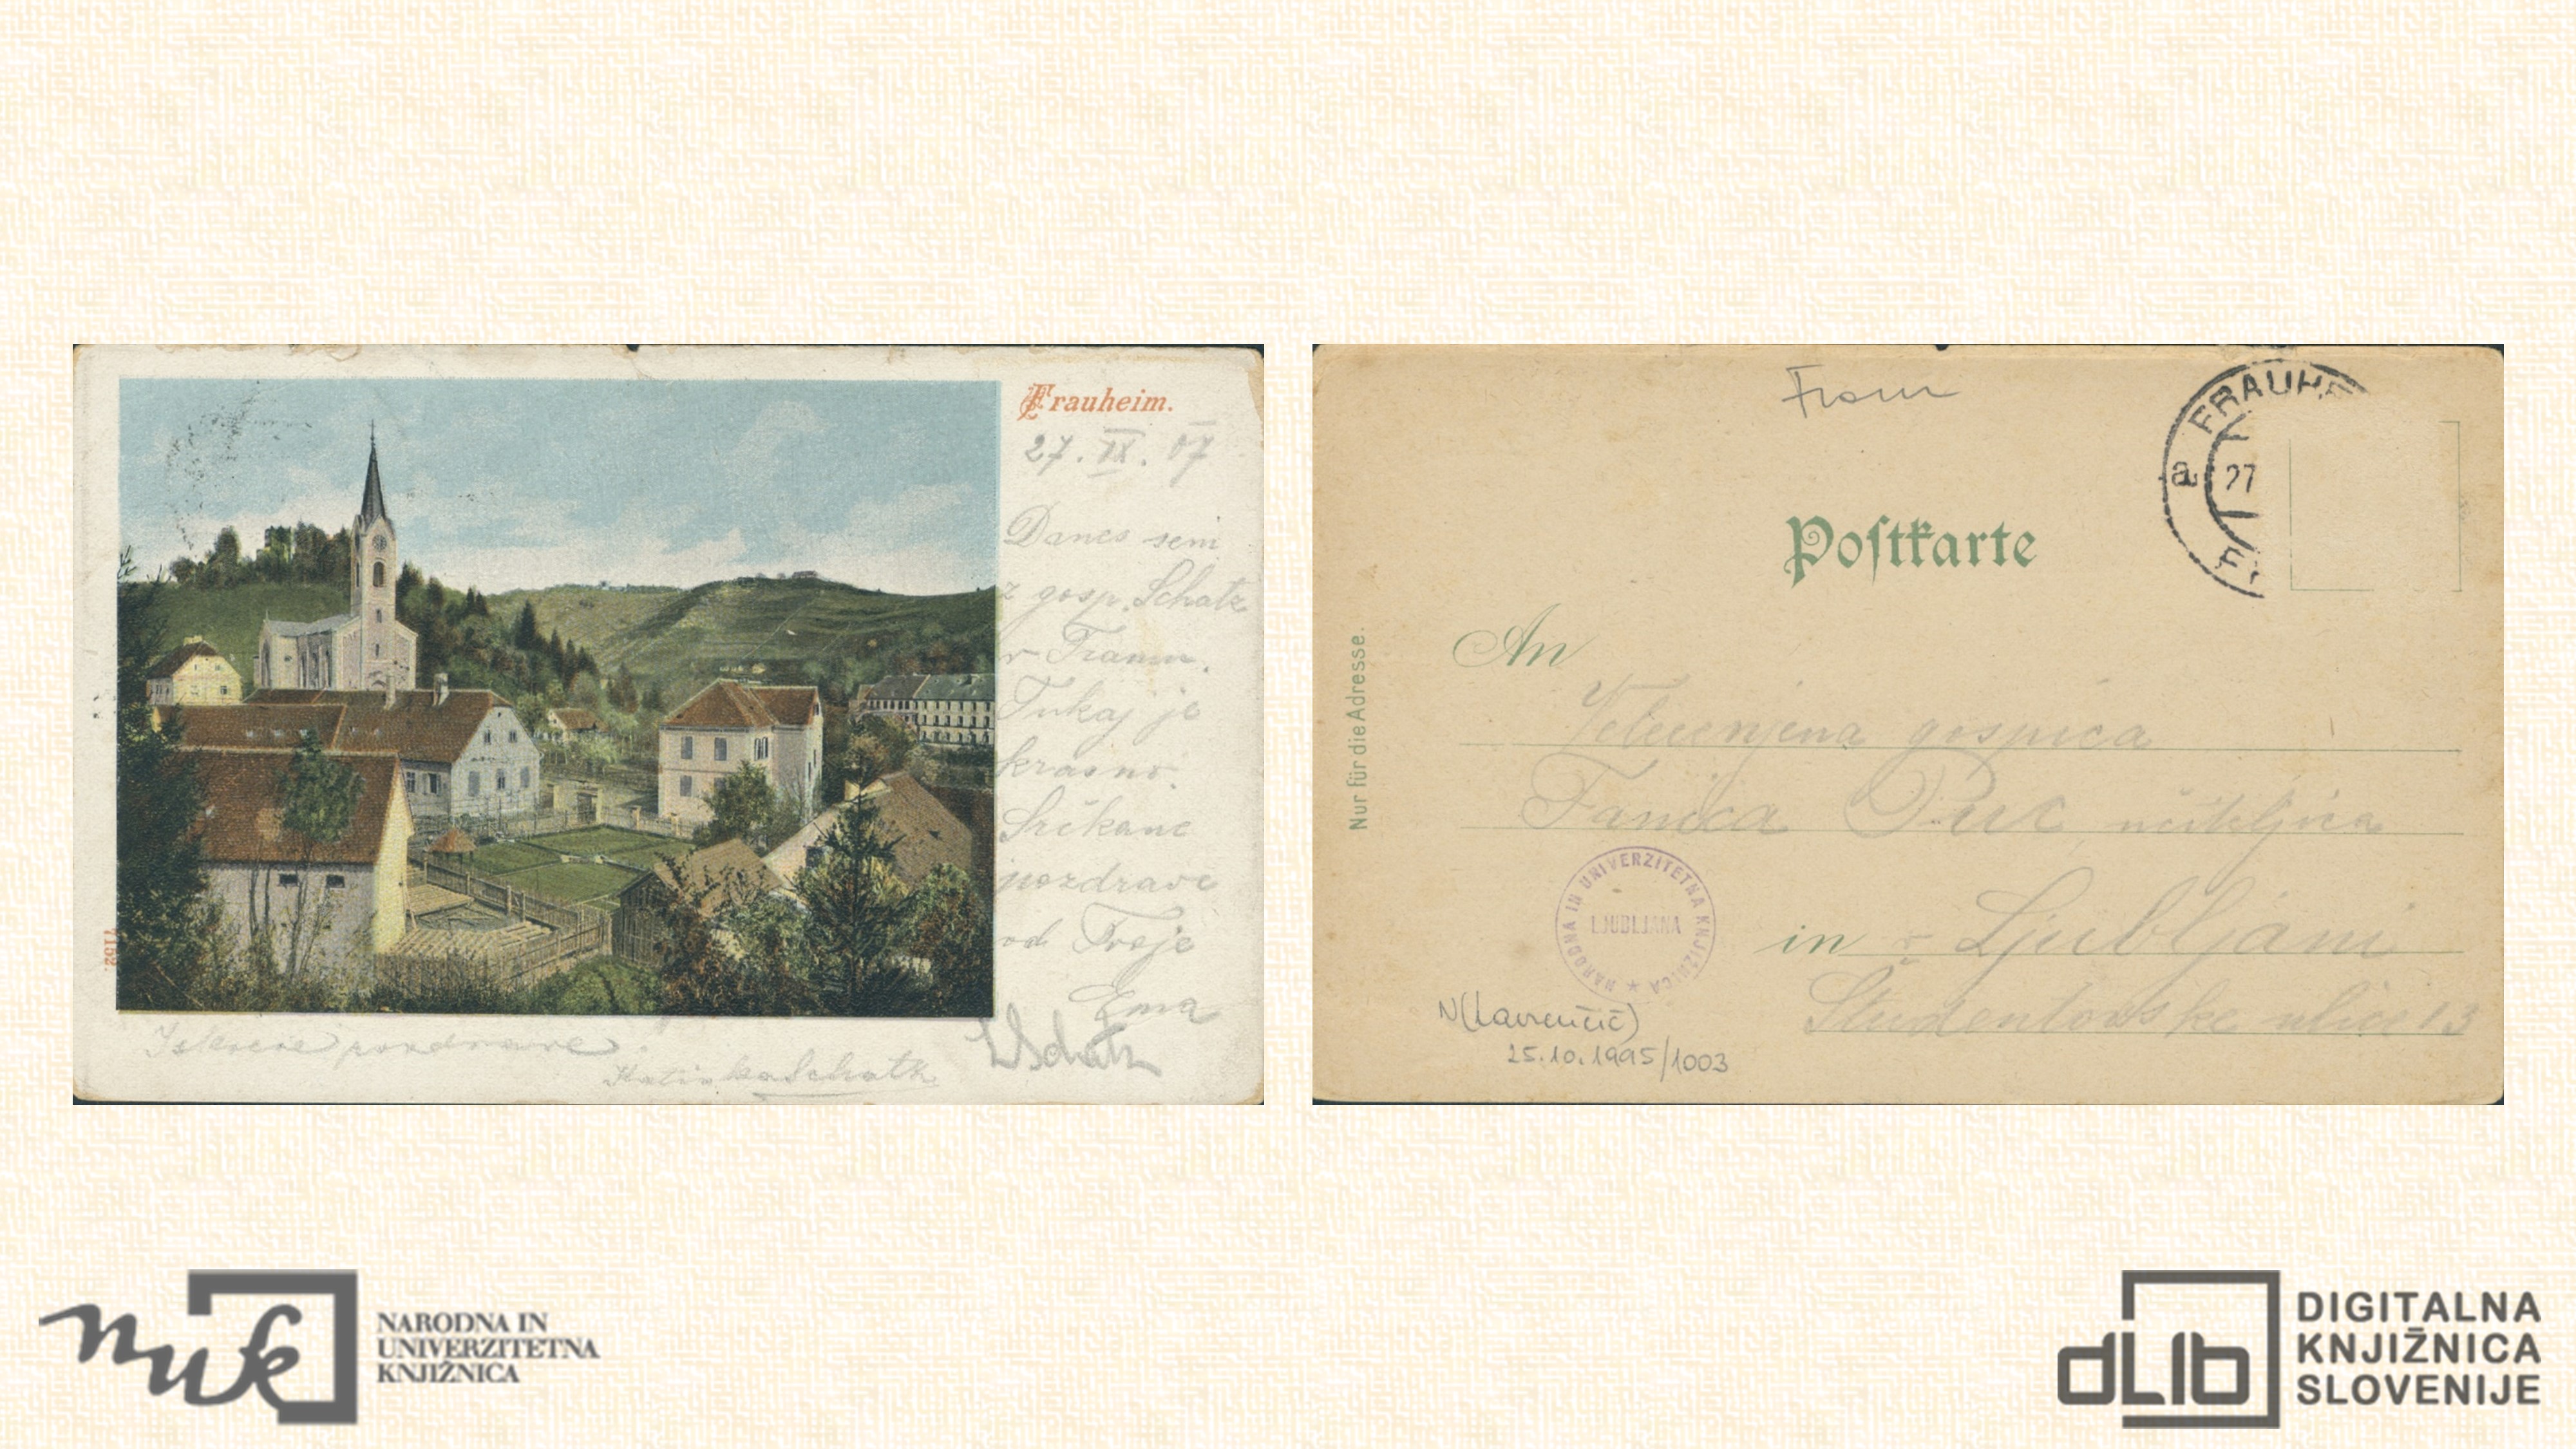 Frauheim.
27. IX. 07
Danes sem
z gosp. Schatz
v Framu.
Tukaj je
krasno.
Srčkane
pozdrave
od Tvoje
Ema
Schatz
Iskrene pozdrave.
Katinka Schatz
7152.
Fram
FRAUHEIM
a
27
Postkarte
Nur für die Adresse.
An
Velecenjena gospica
Fanica Puc učiteljica
in v Ljubljani
Študentovske ulice 13
NARODNA IN UNIVERZITETNA KNJIŽNICA
LJUBLJANA
N(Lavrenčič)
25.10.1995/1003
nuk
NARODNA IN
UNIVERZITETNA
KNJIŽNICA
dLib
DIGITALNA
KNJIŽNICA
SLOVENIJE